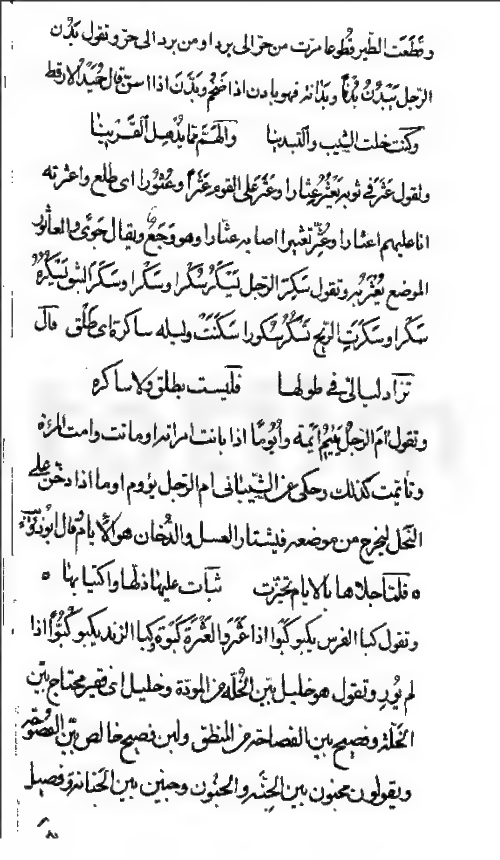 وقطعت الطير قطوعا مرت من حر الى برد او من برد الى حر وتقول بدن
الرجل يبدن بدنا وبدانة فهو بادن اذا ضخم وبدن اذا اسن قال حميد الارقط
وكنت خلت الشيب والتبدينا والهم مما يذهل القرينا
وتقول عثر في ثوبه يعثر عثارا وعثر على القوم عثرا وعثورا اى طلع واعثرته
انا عليهم اعثارا وعثر تعثيرا اصابه عثارا وهو وجع ويقال جوى والعاثور
الموضع يعثر به وتقول سكر الرجل يسكر سكرا وسكرا وسكر النهر يسكره
سكرا وسكرت الريح تسكر سكورا سكنت وليله ساكرة اى طلق قال
تزاد ليالى فى طولها فليست بطلق ولا ساكره
وتقول ام الرجل يئيم ايمة وايوما اذا بانت امراته او ماتت وامت المرءة
وتأيمت كذلك وحكى عن الشيبانى ام الرجل يؤوم اوما اذا دخن على
النحل ليخرج من موضعه فيشتار العسل والدخان هو الايام قال ابو ذؤيب
فلما جلاها بالايام تحيزت ثبات عليها ذلها واكتيابها
وتقول كبا الفرس يكبو كبوا اذا عثر والعثرة كبوة وكبا الزند يكبو كبوا اذا
لم يور وتقول هو خليل بين الخلة من المودة وخليل اى فقير محتاج بين
الخلة وفصيح بين الفصاحة من المنطق ولبن فصيح خالص بين الفصوحة
ويقولون مجنون بين الجنه والجنون وجنين بين الجنانة وفصيل